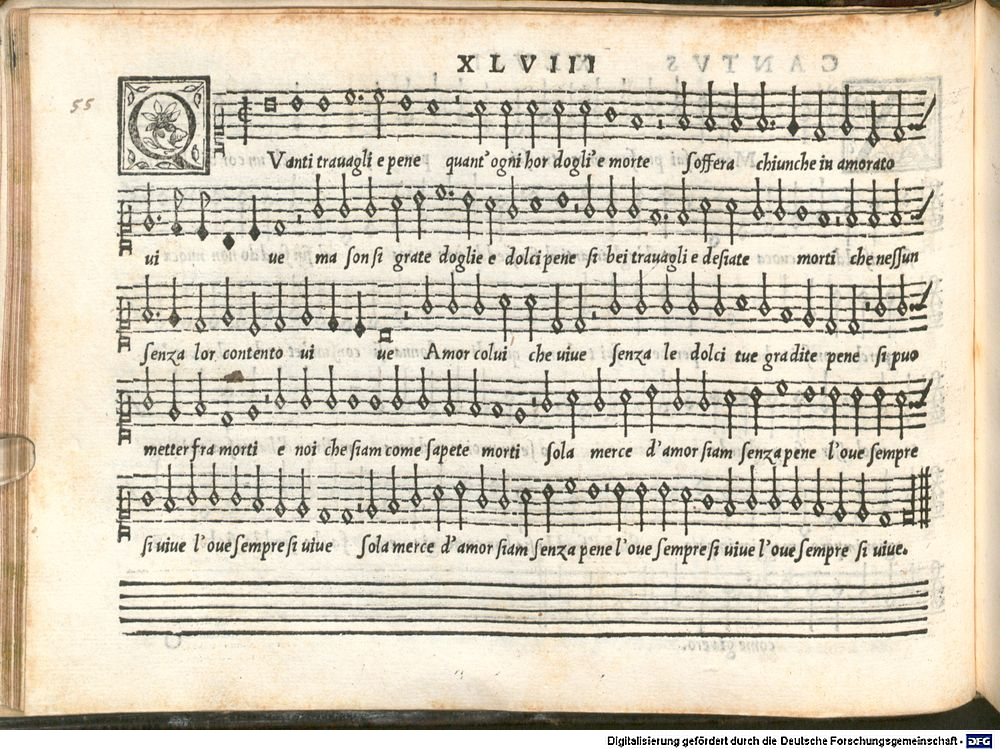 XLVIII
55
QVanti trauagli e pene quant' ogni hor dogli' e morte soffera chiunche in amorato
ui ue ma son si grate doglie e dolci pene si bei trauagli e desiate morti che nessun
senza lor contento ui ue Amor colui che uiue senza le dolci tue gradite pene si puo
metter fra morti e noi che siam come sapete morti sola merce d'amor siam senza pene l'oue sempre
si uiue l'oue sempre si uiue Sola merce d'amor siam senza pene l'oue sempre si uiue l'oue sempre si uiue.
Digitalisierung gefördert durch die Deutsche Forschungsgemeinschaft - DFG